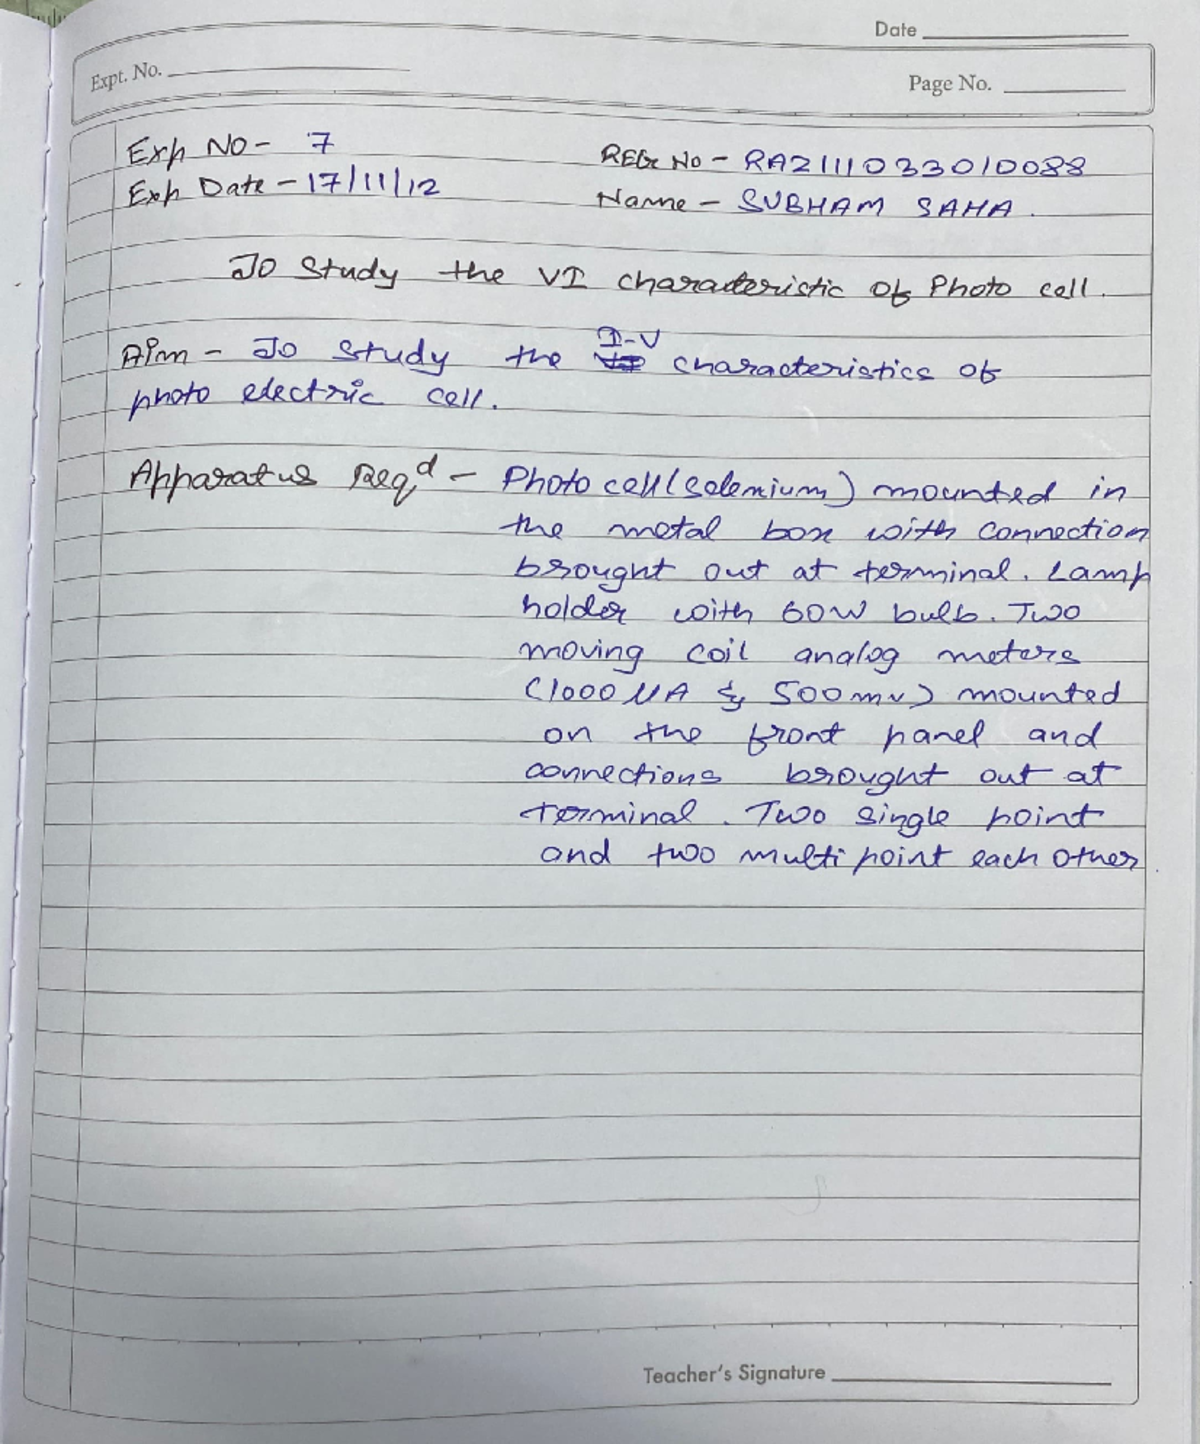 Date
Expt. No.
Page No.
Exp No - 7
REG No - RA2111033010088
Exp Date - 17/11/12
Name - SUBHAM SAHA.
To Study the VI characteristic of Photo cell.
Aim - To study the I-V characteristics of
photo electric cell.
Apparatus Reqd - Photo cell (selenium) mounted in
the metal box with connection
brought out at terminal. Lamp
holder with 60W bulb. Two
moving coil analog meters
(1000 μA & 500mv) mounted
on the front panel and
connections brought out at
terminal. Two single point
and two multi point each other
Teacher's Signature